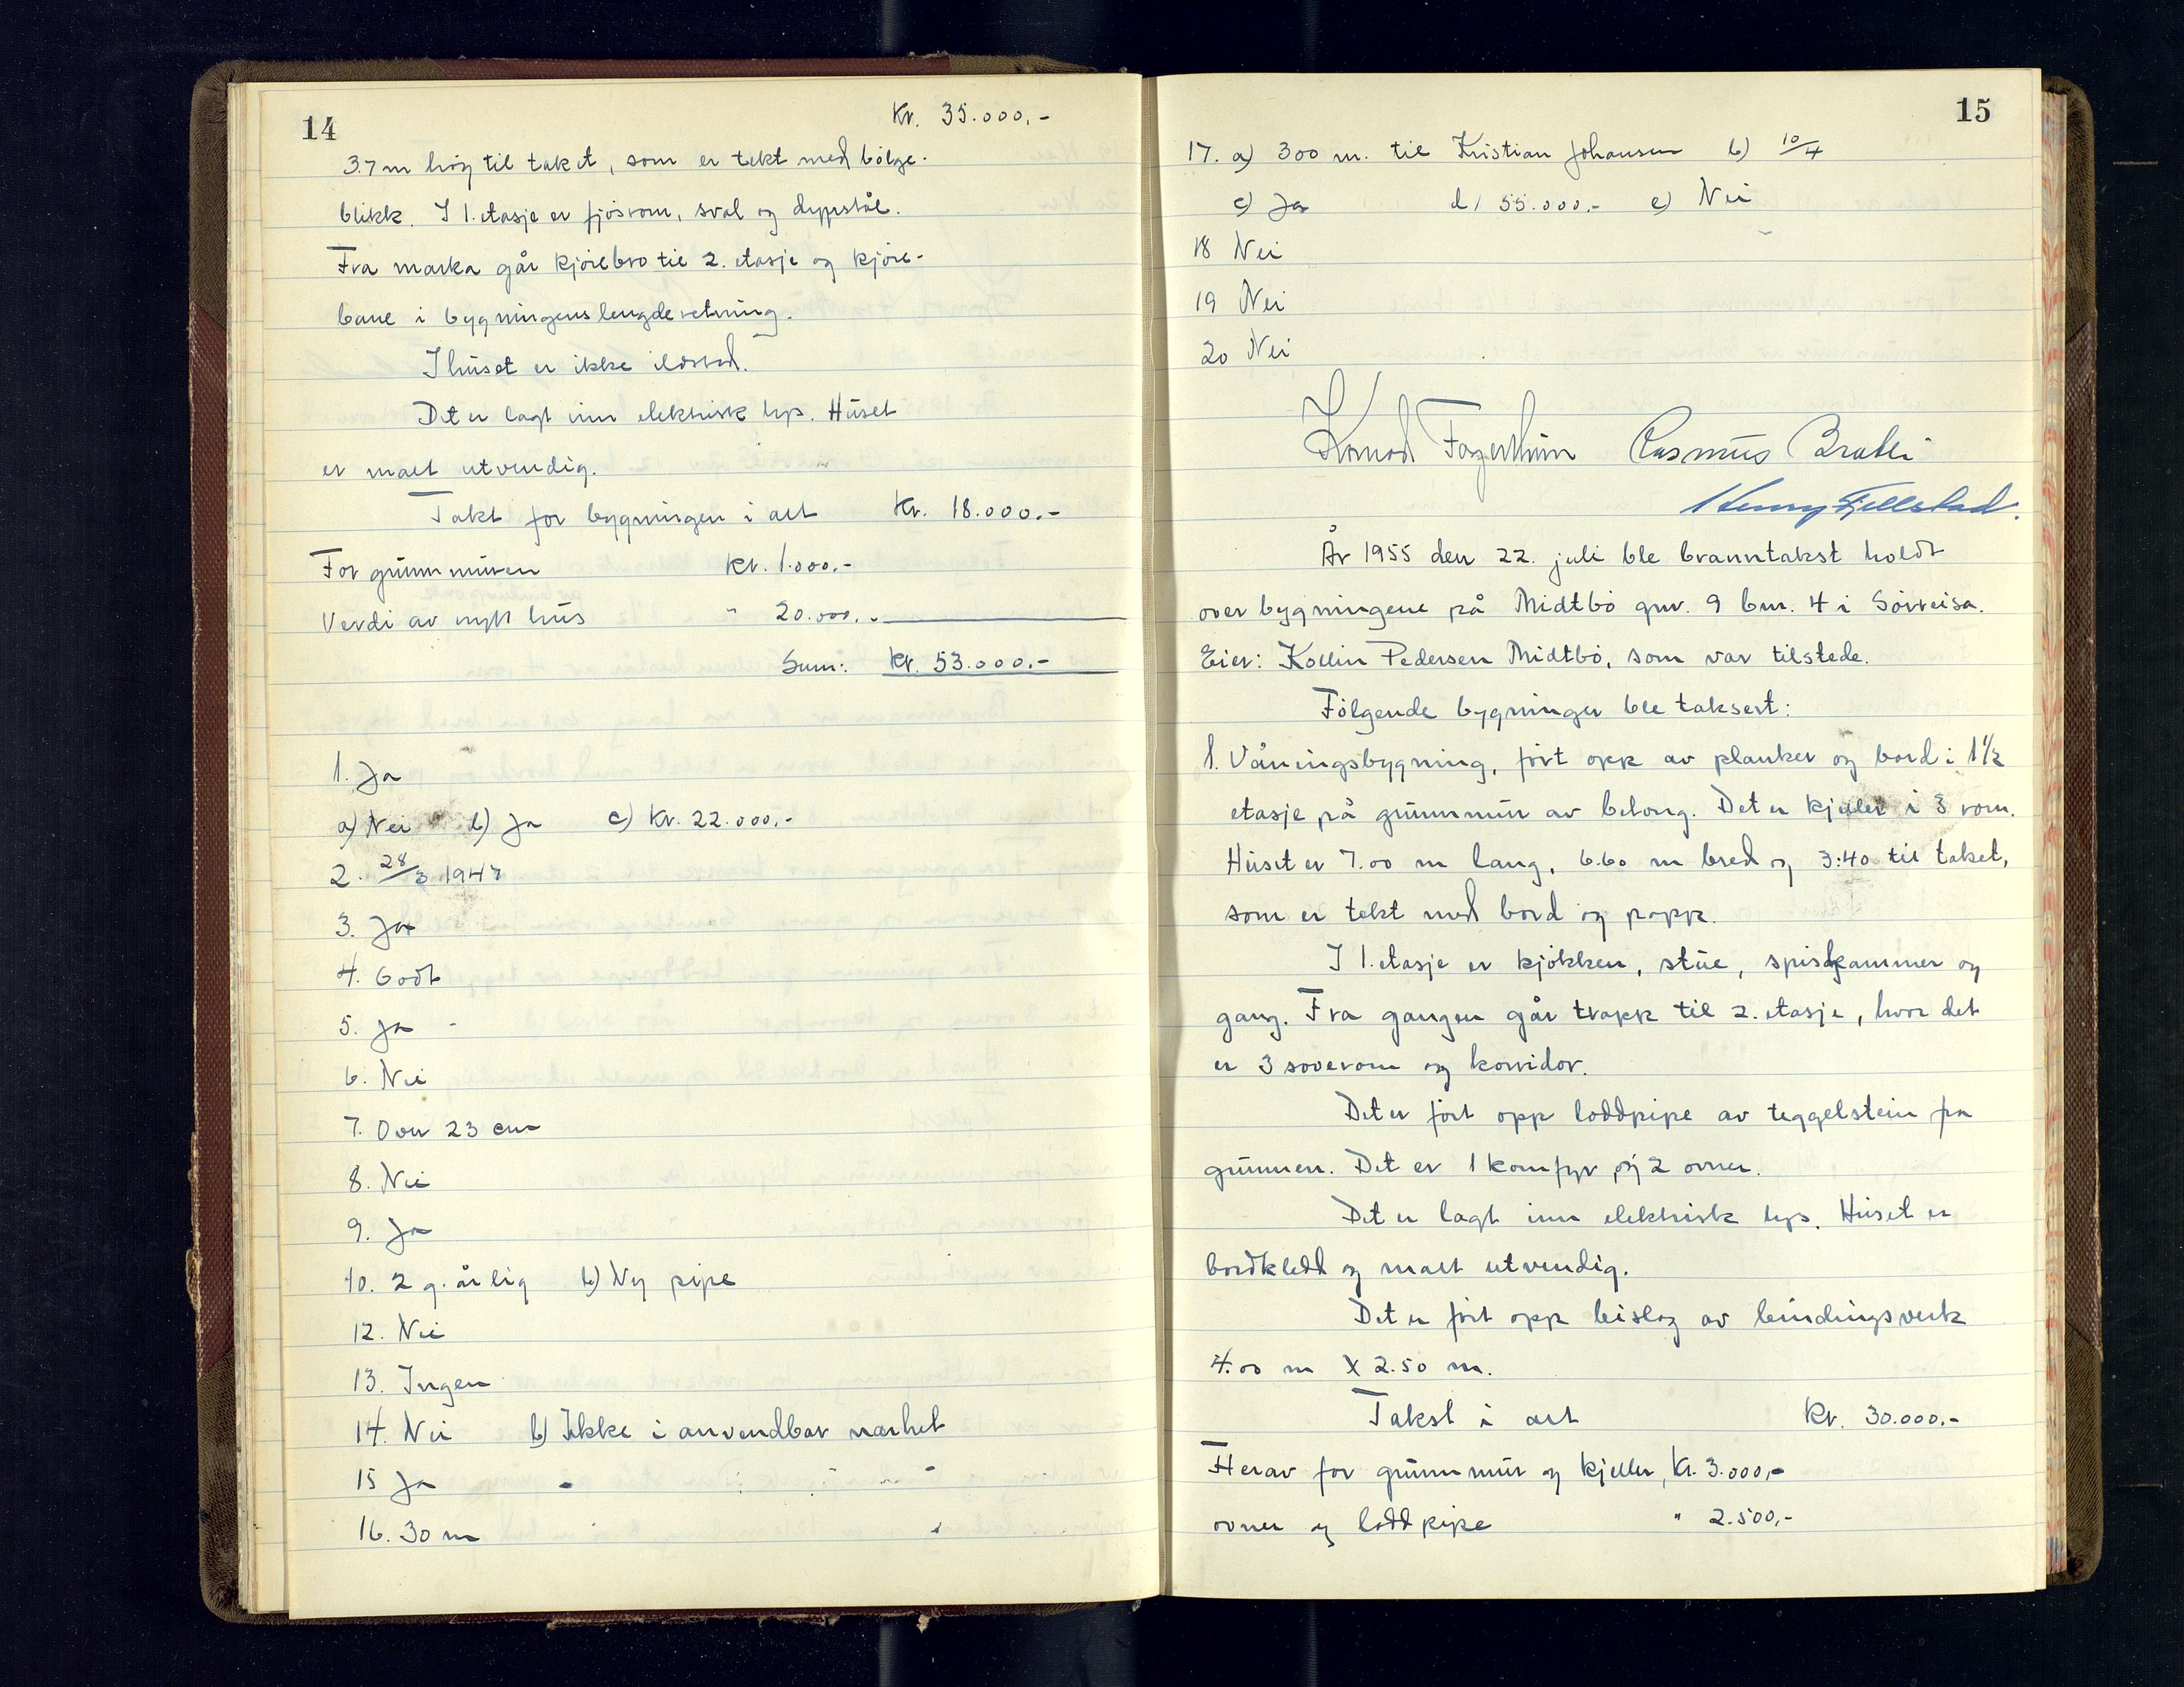 14
Kr. 35.000.-
3.7 m høg til taket, som er tekt med bølge-
blikk. I 1. etasje er fjøsrom, sval og dypstål.
Fra marka går kjørebro til 2. etasje og kjøre-
bane i bygningens lengderetning.
I huset er ikke ildsted.
Det er lagt inn elektrisk lys. Huset
er malt utvendig.
Takt for bygningen i alt Kr. 18.000.-
For grunnmuren Kr. 1.000.-
Verdi av nytt hus " 20.000.-
Sum: Kr. 53.000.-
1. Ja
a) Nei b) Ja c) Kr. 22.000.-
2. 28/3 1947
3. Ja
4. Godt
5. Ja -
6. Nei
7. Over 23 cm
8. Nei
9. Ja
10. 2 g. årlig b) Ny pipe
12. Nei
13. Ingen
14. Nei b) Ikke i anvendbar nærhet
15 Ja
16. 30 m
15
17. a) 300 m. til Kristian Johansen b) 10/4
c) Ja d) 55.000.- e) Nei
18 Nei
19 Nei
20 Nei
Konrad Fagerheim Rasmus Bratli
Henry Fjellstad.
År 1955 den 22. juli ble branntakst holdt
over bygningene på Midtbø gnr. 9 bnr. 4 i Sørreisa.
Eier: Kollin Pedersen Midtbø, som var tilstede.
Følgende bygninger ble taksert:
1. Våningsbygning, ført opp av planker og bord i 1½
etasje på grunnmur av betong. Det er kjeller i 3 rom.
Huset er 7.00 m lang, 6.60 m bred og 3.40 til taket,
som er tekt med bord og papp.
I 1. etasje er kjøkken, stue, spiskammer og
gang. Fra gangen går trapp til 2. etasje, hvor det
er 3 soverom og korridor.
Det er ført opp loddpipe av teggelstein fra
grunnen. Det er 1 komfyr og 2 ovner.
Det er lagt inn elektrisk lys. Huset er
bordkledd og malt utvendig.
Det er ført opp bislag av bindingsverk
4.00 m X 2.50 m.
Takst i alt Kr. 30.000.-
Herav for grunnmur og kjeller, Kr. 3.000,-
ovner og loddpipe " 2.500,-